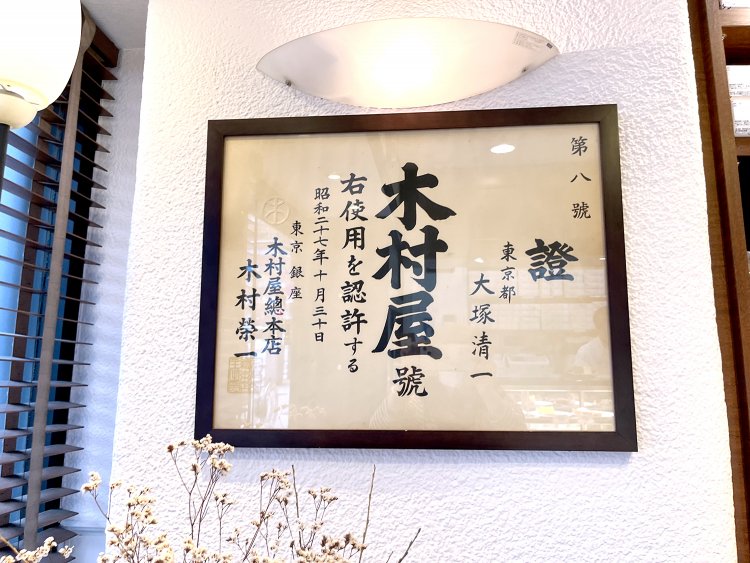 第八號
證
東京都
大塚清一
木村屋號
右使用を認許する
昭和二十七年十月三十日
東京 銀座
木村屋總本店
木村榮一